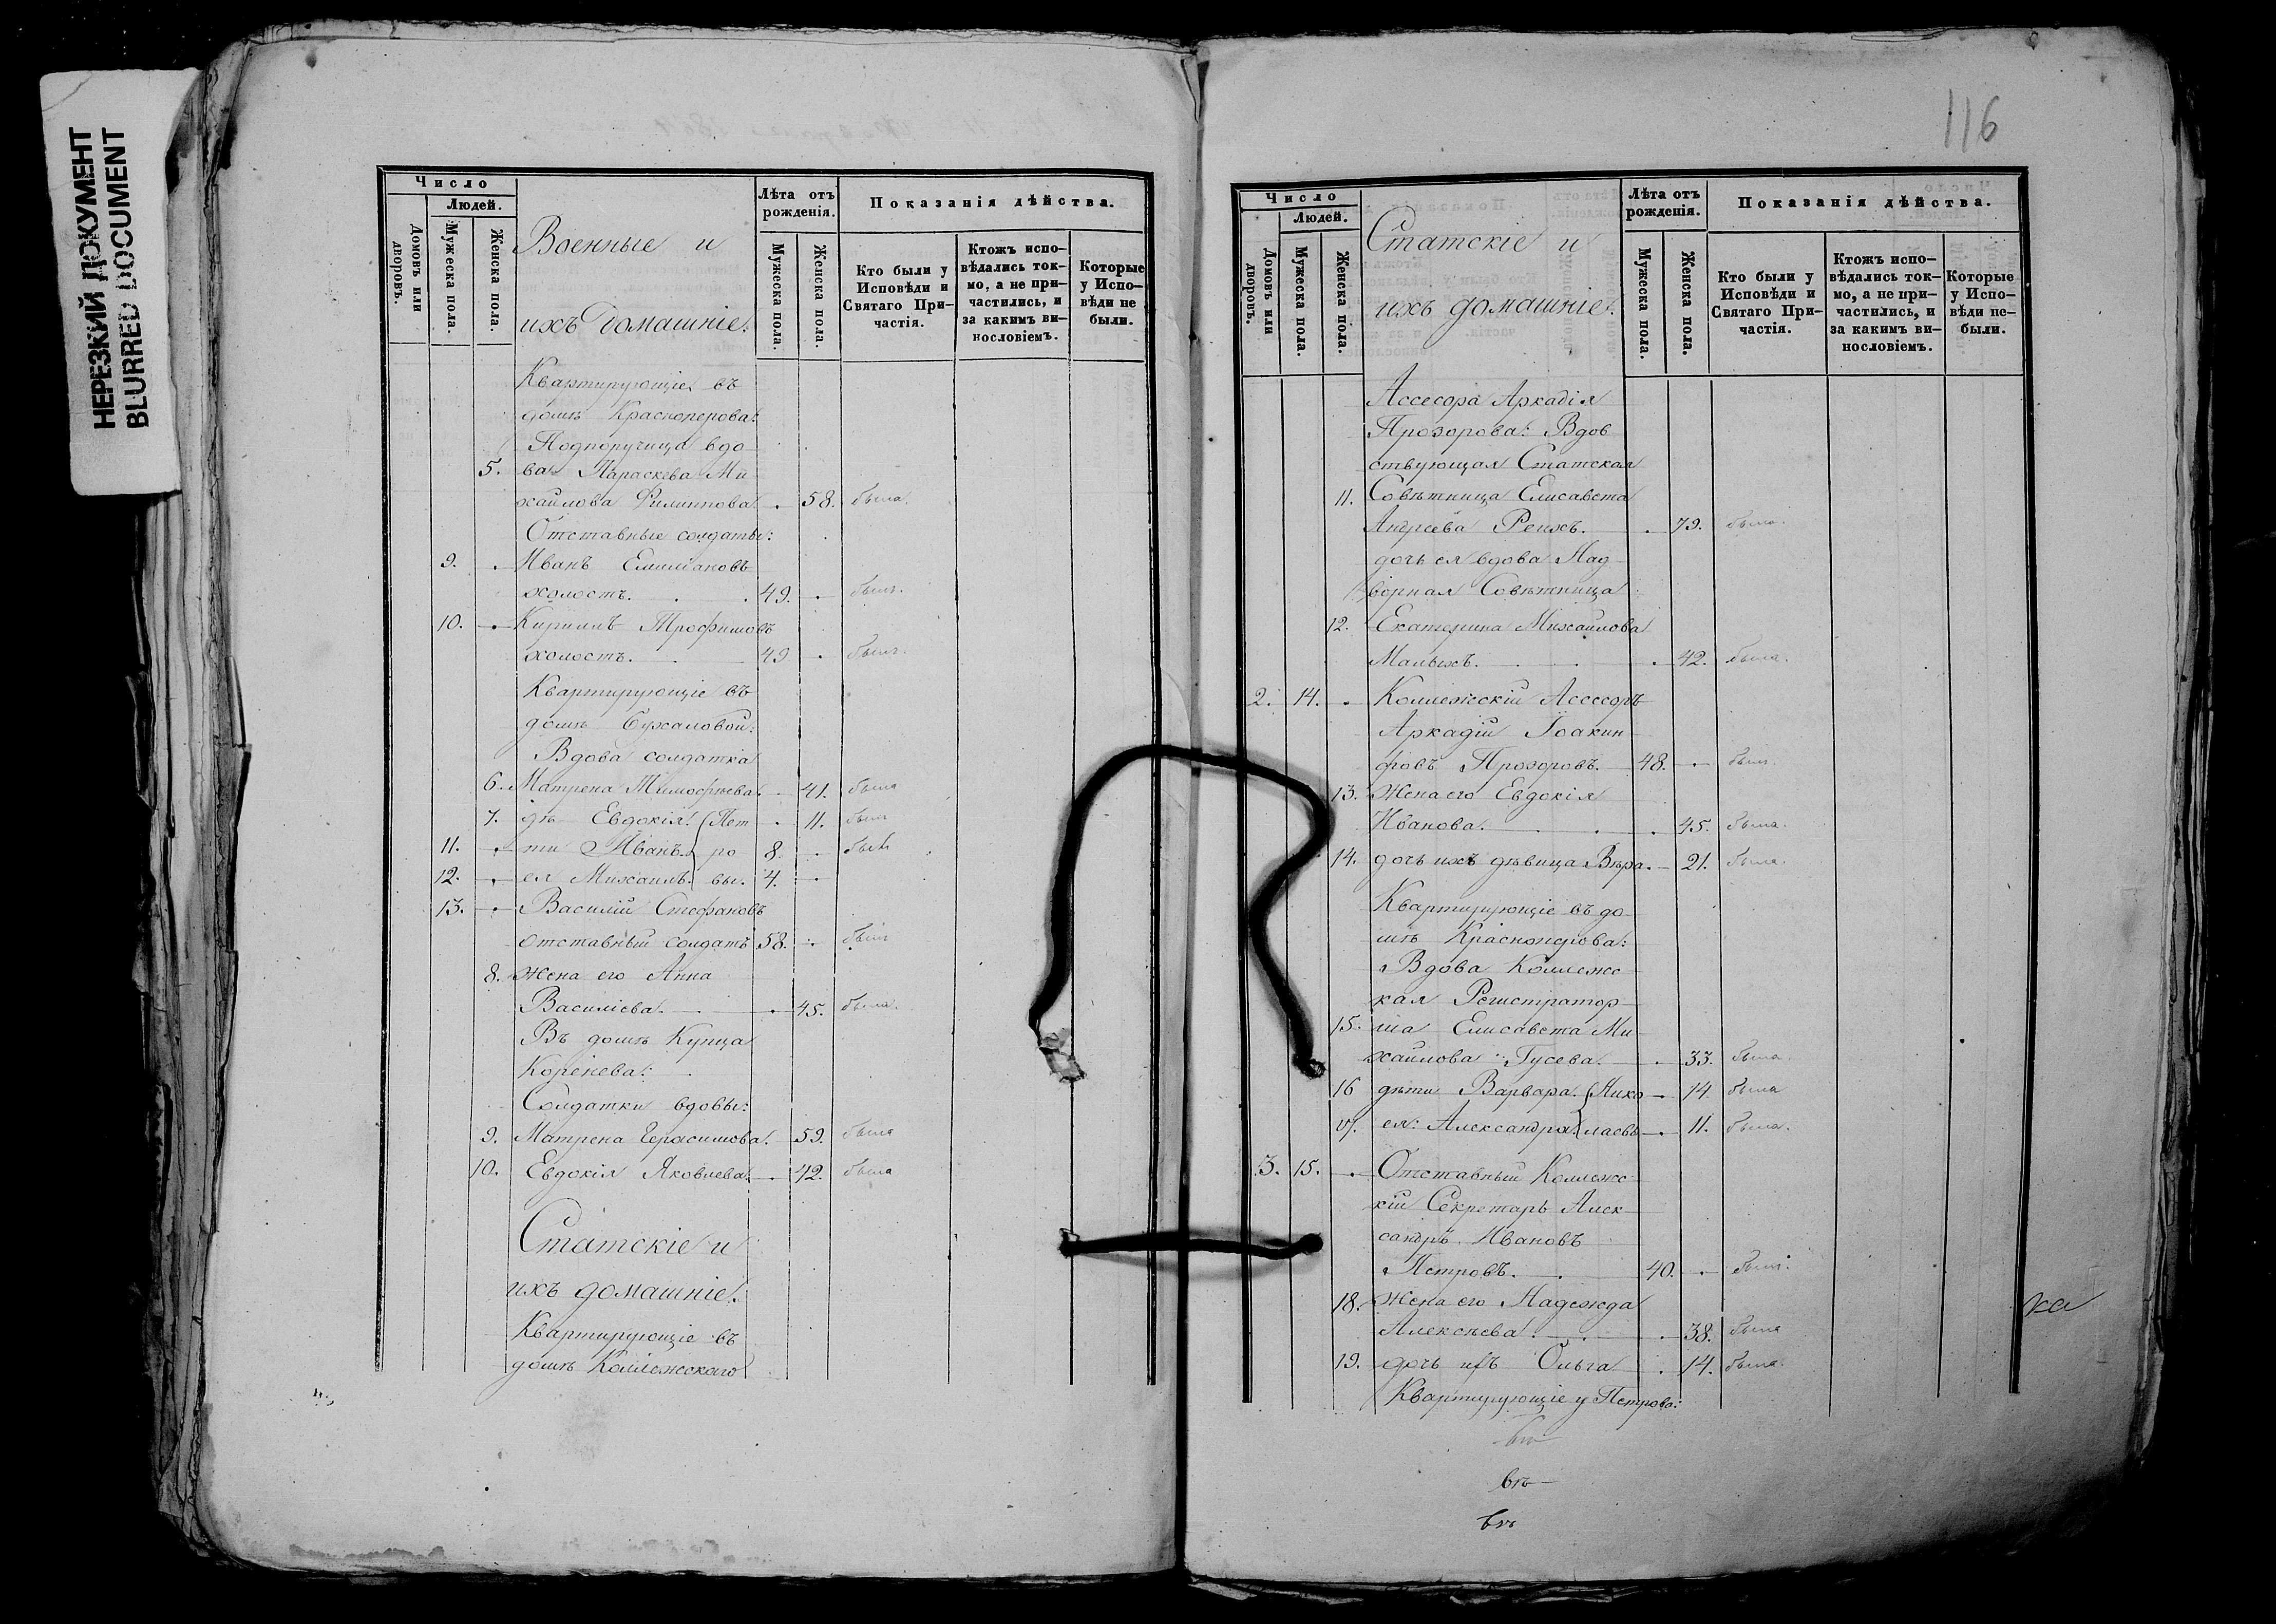 НЕРЕЗКИЙ ДОКУМЕНТ
BLURRED DOCUMENT
Число
Людей.
Домовъ или дворовъ.
Мужеска пола.
Женска пола.
Военные и
ихъ домашніе.
Лѣта отъ рожденія.
Мужеска пола.
Женска пола.
Показанія дѣйства.
Кто были у Исповѣди и Святаго Причастія.
Ктожъ исповѣдались токмо, а не причастились, и за какимъ винословіемъ.
Которые у Исповѣди не были.
Квартирующіе въ
домѣ Красноперова:
Подпоручица вдо-
5. ва Параскева Ми-
хайлова Филиппова. 58. была.
Отставные солдаты:
9. Иванъ Емиліановъ
холостъ. 49. былъ.
10. Кириллъ Трофимовъ
холостъ. 49 былъ.
Квартирующіе въ
домѣ
Вдова солдатка
6. Матрена Тимофѣева. 41. была
7. дѣ- Евдокія. (Пет 11. была
11. ти Иванъ. ро 8. былъ
12. ея Михаилъ. вы. 4.
13. Василій Стефановъ
отставный солдатъ 58. былъ
8. жена его Анна
Василіева. 45. была.
Въ домѣ Купца
Коренева:
Солдатки вдовы:
9. Матрена Герасимова. 59. была
10. Евдокія Яковлева. 42. была
Статскіе и
ихъ домашніе.
Квартирующіе въ
домѣ Коллежскаго
116
Число
Людей.
Домовъ или дворовъ.
Мужеска пола.
Женска пола.
Статскіе и
ихъ домашніе.
Лѣта отъ рожденія.
Мужеска пола.
Женска пола.
Показанія дѣйства.
Кто были у Исповѣди и Святаго Причастія.
Ктожъ исповѣдались токмо, а не причастились, и за какимъ винословіемъ.
Которые у Исповѣди небыли.
Ассесора Аркадія
Прозорова: Вдов
ствующая Статская
11. Совѣтница Елисавета
Андреева 79. была.
дочь ея вдова Над-
ворная Совѣтница
12. Екатерина Михайлова
Малыхъ. 42. была.
2. 14. Коллежскій Ассесоръ
Аркадій Іоакин-
фовъ Прозоровъ. 48. былъ
13. жена его Евдокія
Иванова. 45. была.
14. дочь ихъ дѣвица Вѣра. 21. была.
Квартирующіе въ до-
мѣ Красноперова:
Вдова Коллежс-
кая Регистратор-
15. ша Елисавета Ми-
хайлова Гусева. 33. была.
16 дѣти Варвара. (Нико 14. была
17. ея: Александра. лаевы 11. была.
3. 15. Отставный Коллежс-
кій Секретарь Алек-
сандръ Ивановъ
Петровъ. 40. былъ.
18. жена его Надежда
Алексѣева. 38. была
19. дочь ихъ Ольга 14. была.
Квартирующіе у Петрова:
въ
въ
ка